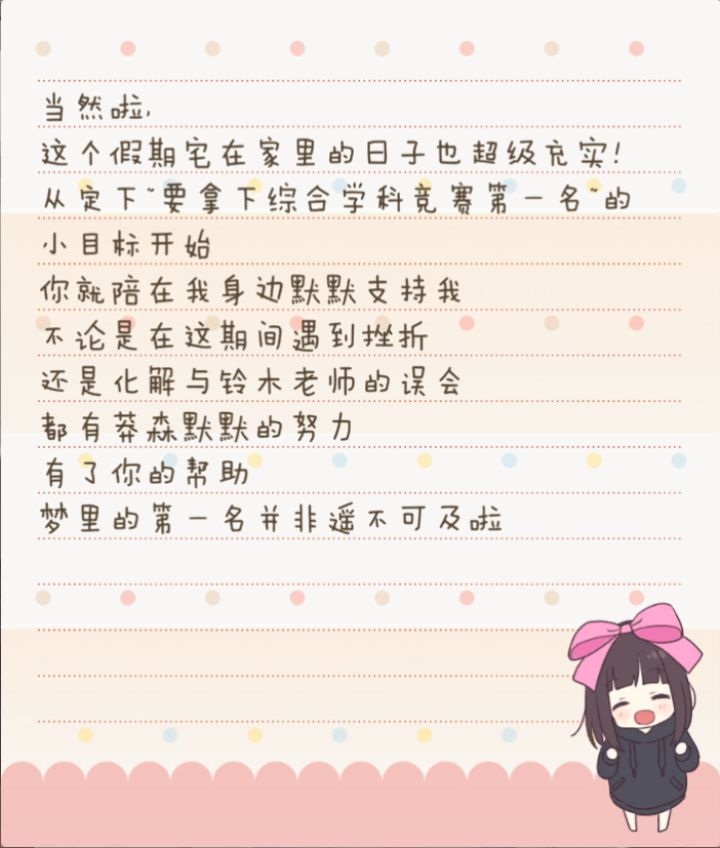 当然啦,
这个假期宅在家里的日子也超级充实!
从定下“要拿下综合学科竞赛第一名”的
小目标开始
你就陪在我身边默默支持我
不论是在这期间遇到挫折
还是化解与铃木老师的误会
都有莽森默默的努力
有了你的帮助
梦里的第一名并非遥不可及啦